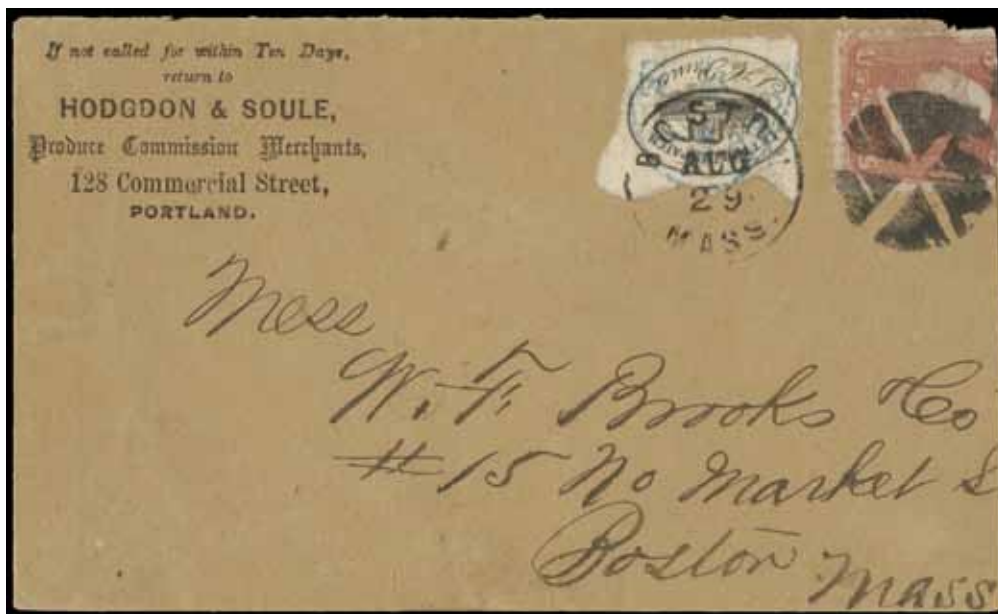 If not called for within Ten Days,
return to
HODGDON & SOULE,
Produce Commission Merchants,
128 Commercial Street,
PORTLAND.
BOSTON
AUG
29
MASS.
Mess
W. F. Brooks & Co
# 15 No Market S
Boston
Mass